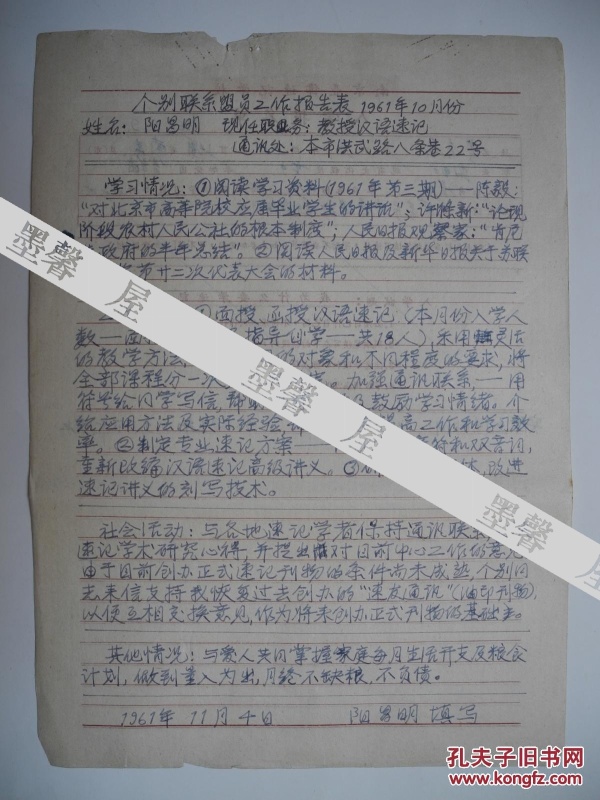 个别联系盟员工作报告表 1961年10月份
姓名：阳昌明 现任职业务：教授汉语速记
通讯处：本市洪武路八条巷22号
学习情况：①阅读学习资料(1961年第三期)——陈毅：
"对北京市高等院校应届毕业学生的讲话"；许涤新："论现
阶段农村人民公社的根本制度"；人民日报观察家："肯尼
政府的半年总结"。②阅读人民日报及新华日报关于苏联
廿二次代表大会的材料。
面授、函授汉语速记(本月份入学人
数—面 指导自学——共18人)，采用灵活
的教学方法 的对象和不同程度的要求，将
全部课程分一次 加强通讯联系，——用
符号给同学写信， 鼓励学习情绪。介
绍应用方法及实际经验， 高工作和学习效
率。②制定专业速记方案 符和双音词，
重新改编汉语速记高级讲义。③ 改进
速记讲义的刻写技术。
社会活动：与各地速记学者保持通讯联系
速记学术研究心得，并提出对目前中心工作的意见
由于目前创办正式速记刊物的条件尚未成熟，个别同
志来信支持我恢复过去创办的"速友通讯"(油印刊物)，
以便互相交换意见，作为将来创办正式刊物的基础
其他情况：与爱人共同掌握家庭每月生活开支及粮食
计划，做到量入为出，月终不缺粮，不负债。
1961年11月4日 阳昌明填写
墨馨屋
墨馨屋
墨馨屋
孔夫子旧书网
www.kongfz.com